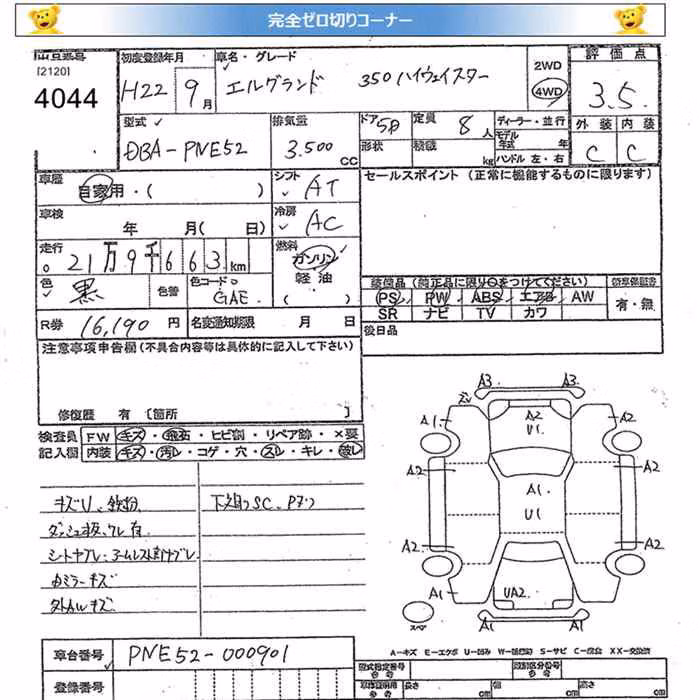 完全ゼロ切りコーナー
[2120]
4044
初度登録年月 車名・グレード 評価点
H22 9月 エルグランド 350ハイウェイスター 2WD 4WD 3.5
型式 排気量 ドア 定員 ディーラー・並行 外装 内装
DBA-PNE52 3.500 CC 5D 8人 モデル年式 年 C C
形状 積載 kg ハンドル 左・右
車歴 自家用・( ) シフト AT セールスポイント (正常に機能するものに限ります)
車検 年 月(日) 冷房 AC
走行 21万9千663km 燃料 ガソリン 軽油 ( )
色 黒 色替 色コード GAE 装備品 (純正品に限り○をつけてください)
PS PW ABS エアB AW 有・無
SR ナビ TV カワ
R券 16,190円 名変通知期限 月 日 後日品
注意事項申告欄 (不具合内容等は具体的に記入して下さい)
修復歴 有 [箇所 ]
検査員 FW キズ・飛石・ヒビ割・リペア跡・×要
記入欄 内装 キズ・汚レ・コゲ・穴・スレ・キレ・破レ
キズU、鉄粉 下廻りSC、Pサビ
ダッシュ板、ワレ有
シートヤブレ、アームレスト
ミラーキズ
外AWキズ
A3 A3
A1 A2 U1 A2
A2 A2
A1 U1
A2 A2
A1 UA2 A1
スペア A1 A1
A-キズ E-エクボ U-凹み W-補修跡 S-サビ C-腐食 XX-交換済
車台番号 PNE52-000901
型式指定番号 参考 類別区分番号 参考
登録番号 車庫証明用参考 長さ cm 幅 cm 高さ cm